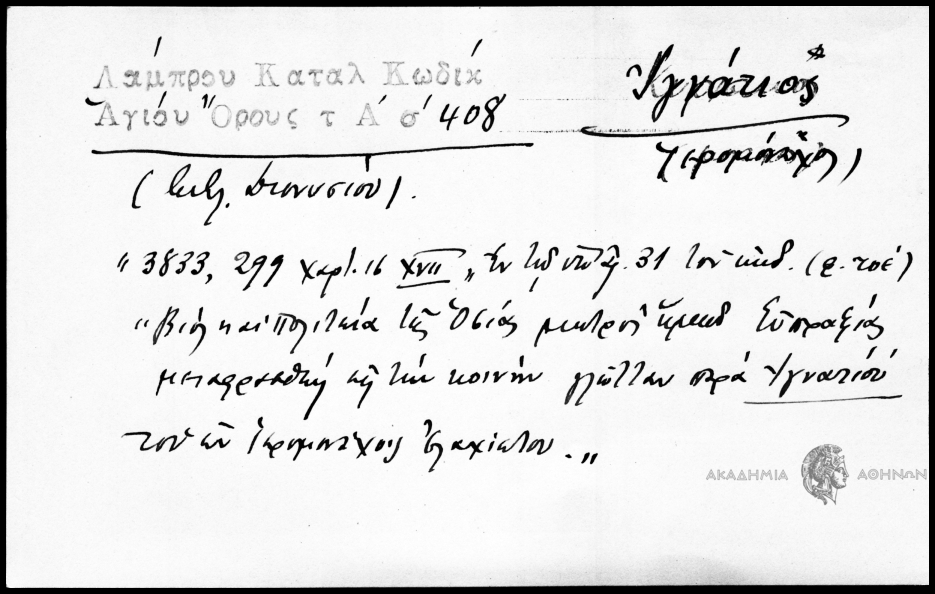 Λάμπρου Καταλ Κωδίκ
Ἁγίου Ὄρους τ Α' σ' 408
Ἰγνάτιος
(ἱερομόναχος)
(Διονυσίου).
"3833, 299 χαρτ. 16 XVII „ Ἐν 31 τοῦ κώδ. (φ. τοέ)
"Βίος καὶ πολιτεία τῆς Ὁσίας μητρὸς ἡμῶν Εὐπραξίας
μεταφρασθεὶς εἰς τὴν κοινὴν γλῶτταν παρὰ Ἰγνατίου
τοῦ ἐν ἱερομονάχοις ἐλαχίστου."
ΑΚΑΔΗΜΙΑ ΑΘΗΝΩΝ